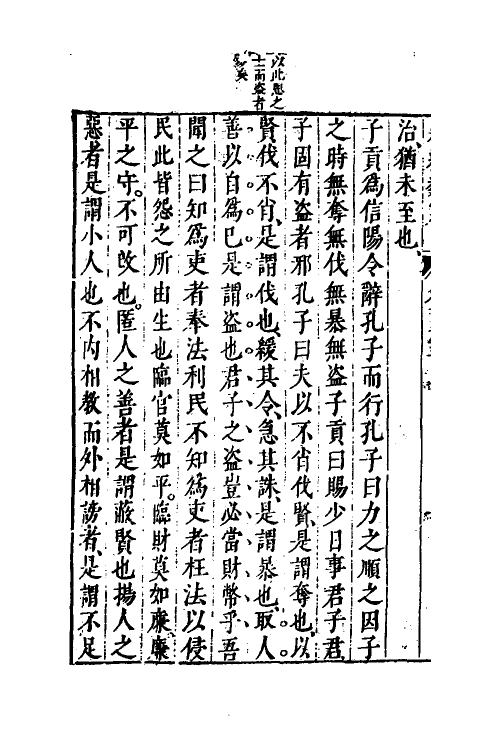 以此思之
士而盜者
多矣
治猶未至也
子貢爲信陽令辭孔子而行孔子曰力之順之因子
之時無奪無伐無暴無盜子貢曰賜少日事君子君
子固有盜者邪孔子曰夫以不肖伐賢是謂奪也以
賢伐不肖是謂伐也緩其令急其誅是謂暴也取人
善以自爲已是謂盜也君子之盜豈必當財幣乎吾
聞之曰知爲吏者奉法利民不知爲吏者枉法以侵
民此皆怨之所由生也臨官莫如平臨財莫如廉廉
平之守不可攻也匿人之善者是謂蔽賢也揚人之
惡者是謂小人也不內相教而外相謗者是謂不足